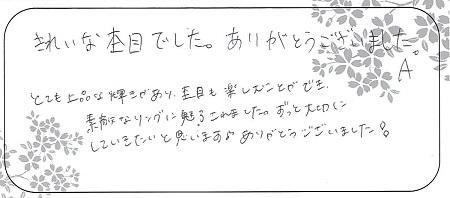 きれいな杢目でした。ありがとうございました。
A
とても上品な輝きがあり、杢目も楽しむことができ、
素敵なリングに魅了されました。ずっと大切に
していきたいと思います♪ ありがとうございました！